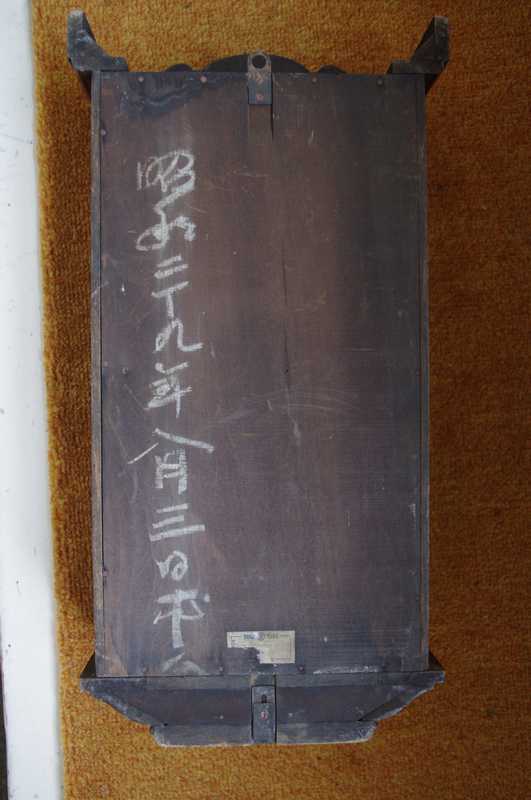 昭和二十九年八月三日求ム